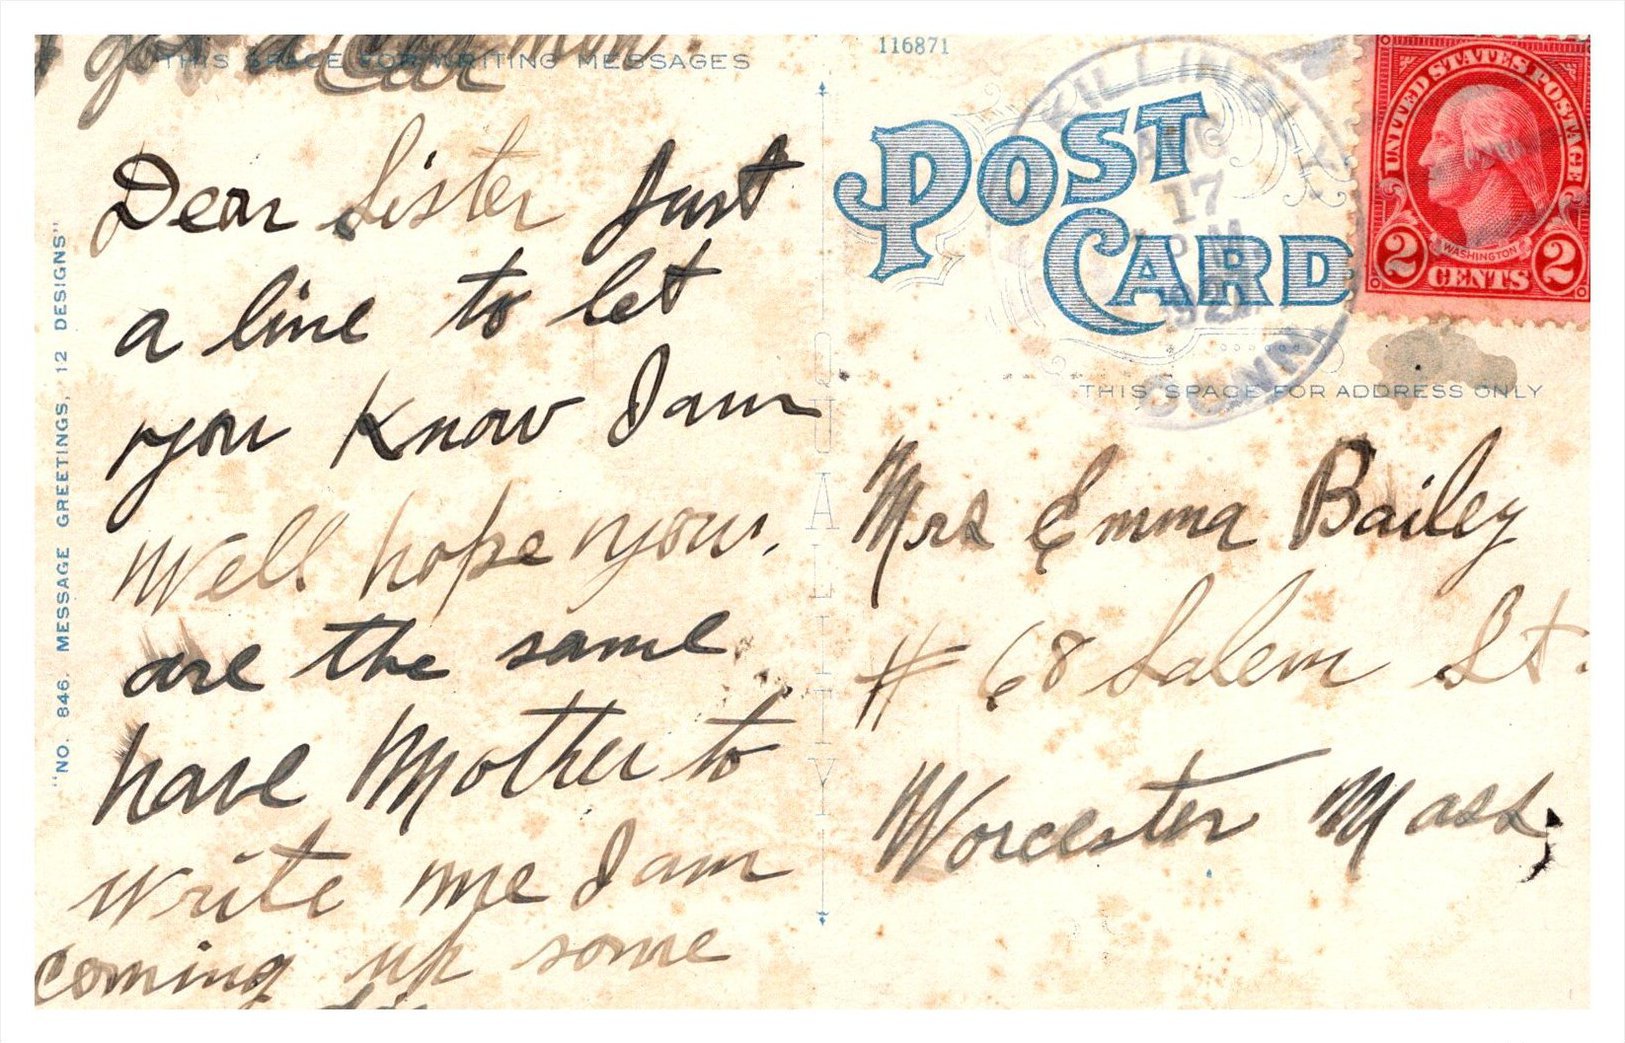 I got a
Car
THIS SPACE FOR WRITING MESSAGES
Dear Sister Just
a line to let
you Know I am
Well hope you
are the same
have Mother to
write me I am
coming up some
"NO. 846. MESSAGE GREETINGS, 12 DESIGNS"
QUALITY
116871
POST
CARD
KILLINGLY
AUG
17
PM
CONN
UNITED STATES POSTAGE
WASHINGTON
2 CENTS 2
THIS SPACE FOR ADDRESS ONLY
Mrs Emma Bailey
# 68 Salem St.
Worcester Mass,